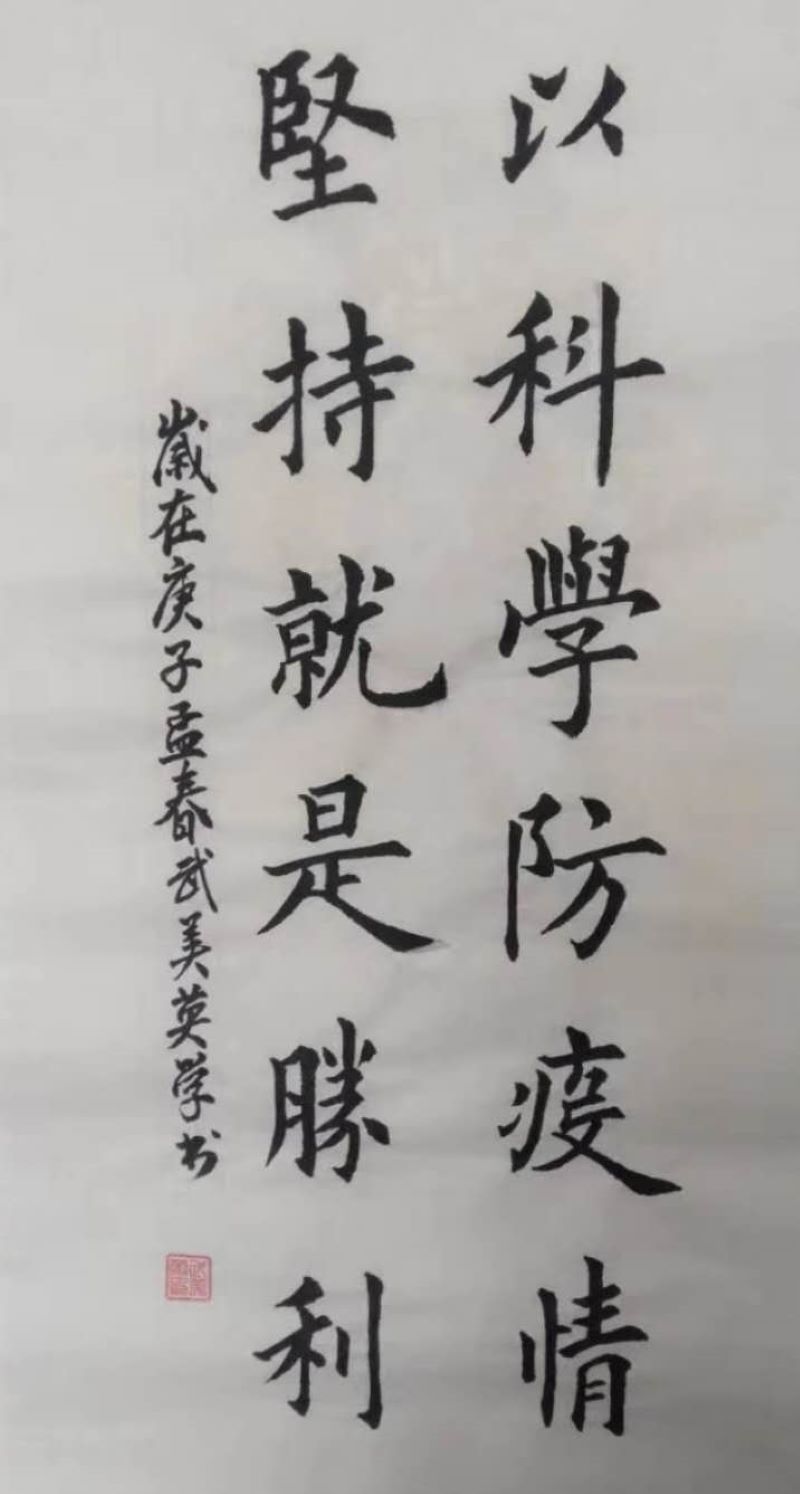 以科學防疫情
堅持就是勝利
歲在庚子孟春武美英学书